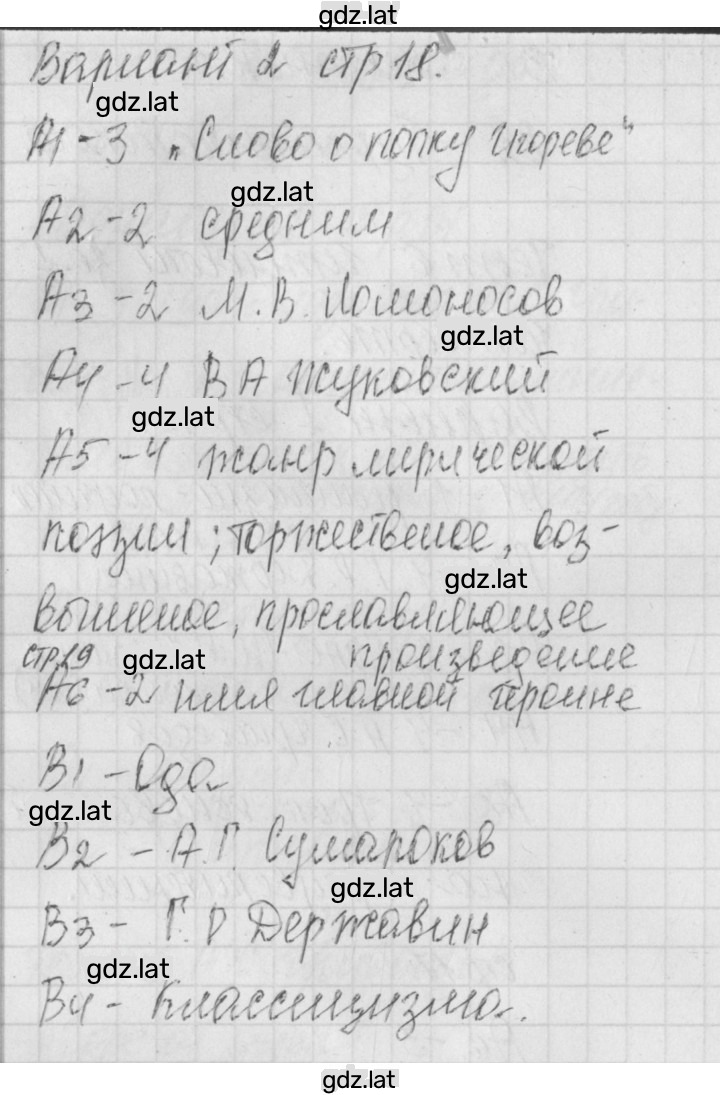 gdz.lat
Вариант 2 стр 18.
gdz.lat
А1 - 3 „Слово о полку Игореве"
gdz.lat
А2 - 2 средним
А3 - 2 М. В. Ломоносов
gdz.lat
А4 - 4 В А Жуковский
gdz.lat
А5 - 4 жанр лирической
поэзии; торжественое, воз-
gdz.lat
вышеное, прославляющее
стр.19 gdz.lat произведение
А6 - 2 имя главной героине
В1 - Ода
gdz.lat
В2 - А. Г. Сумароков
gdz.lat
В3 - Г. Р Державин
gdz.lat
В4 - Классицизма.
gdz.lat